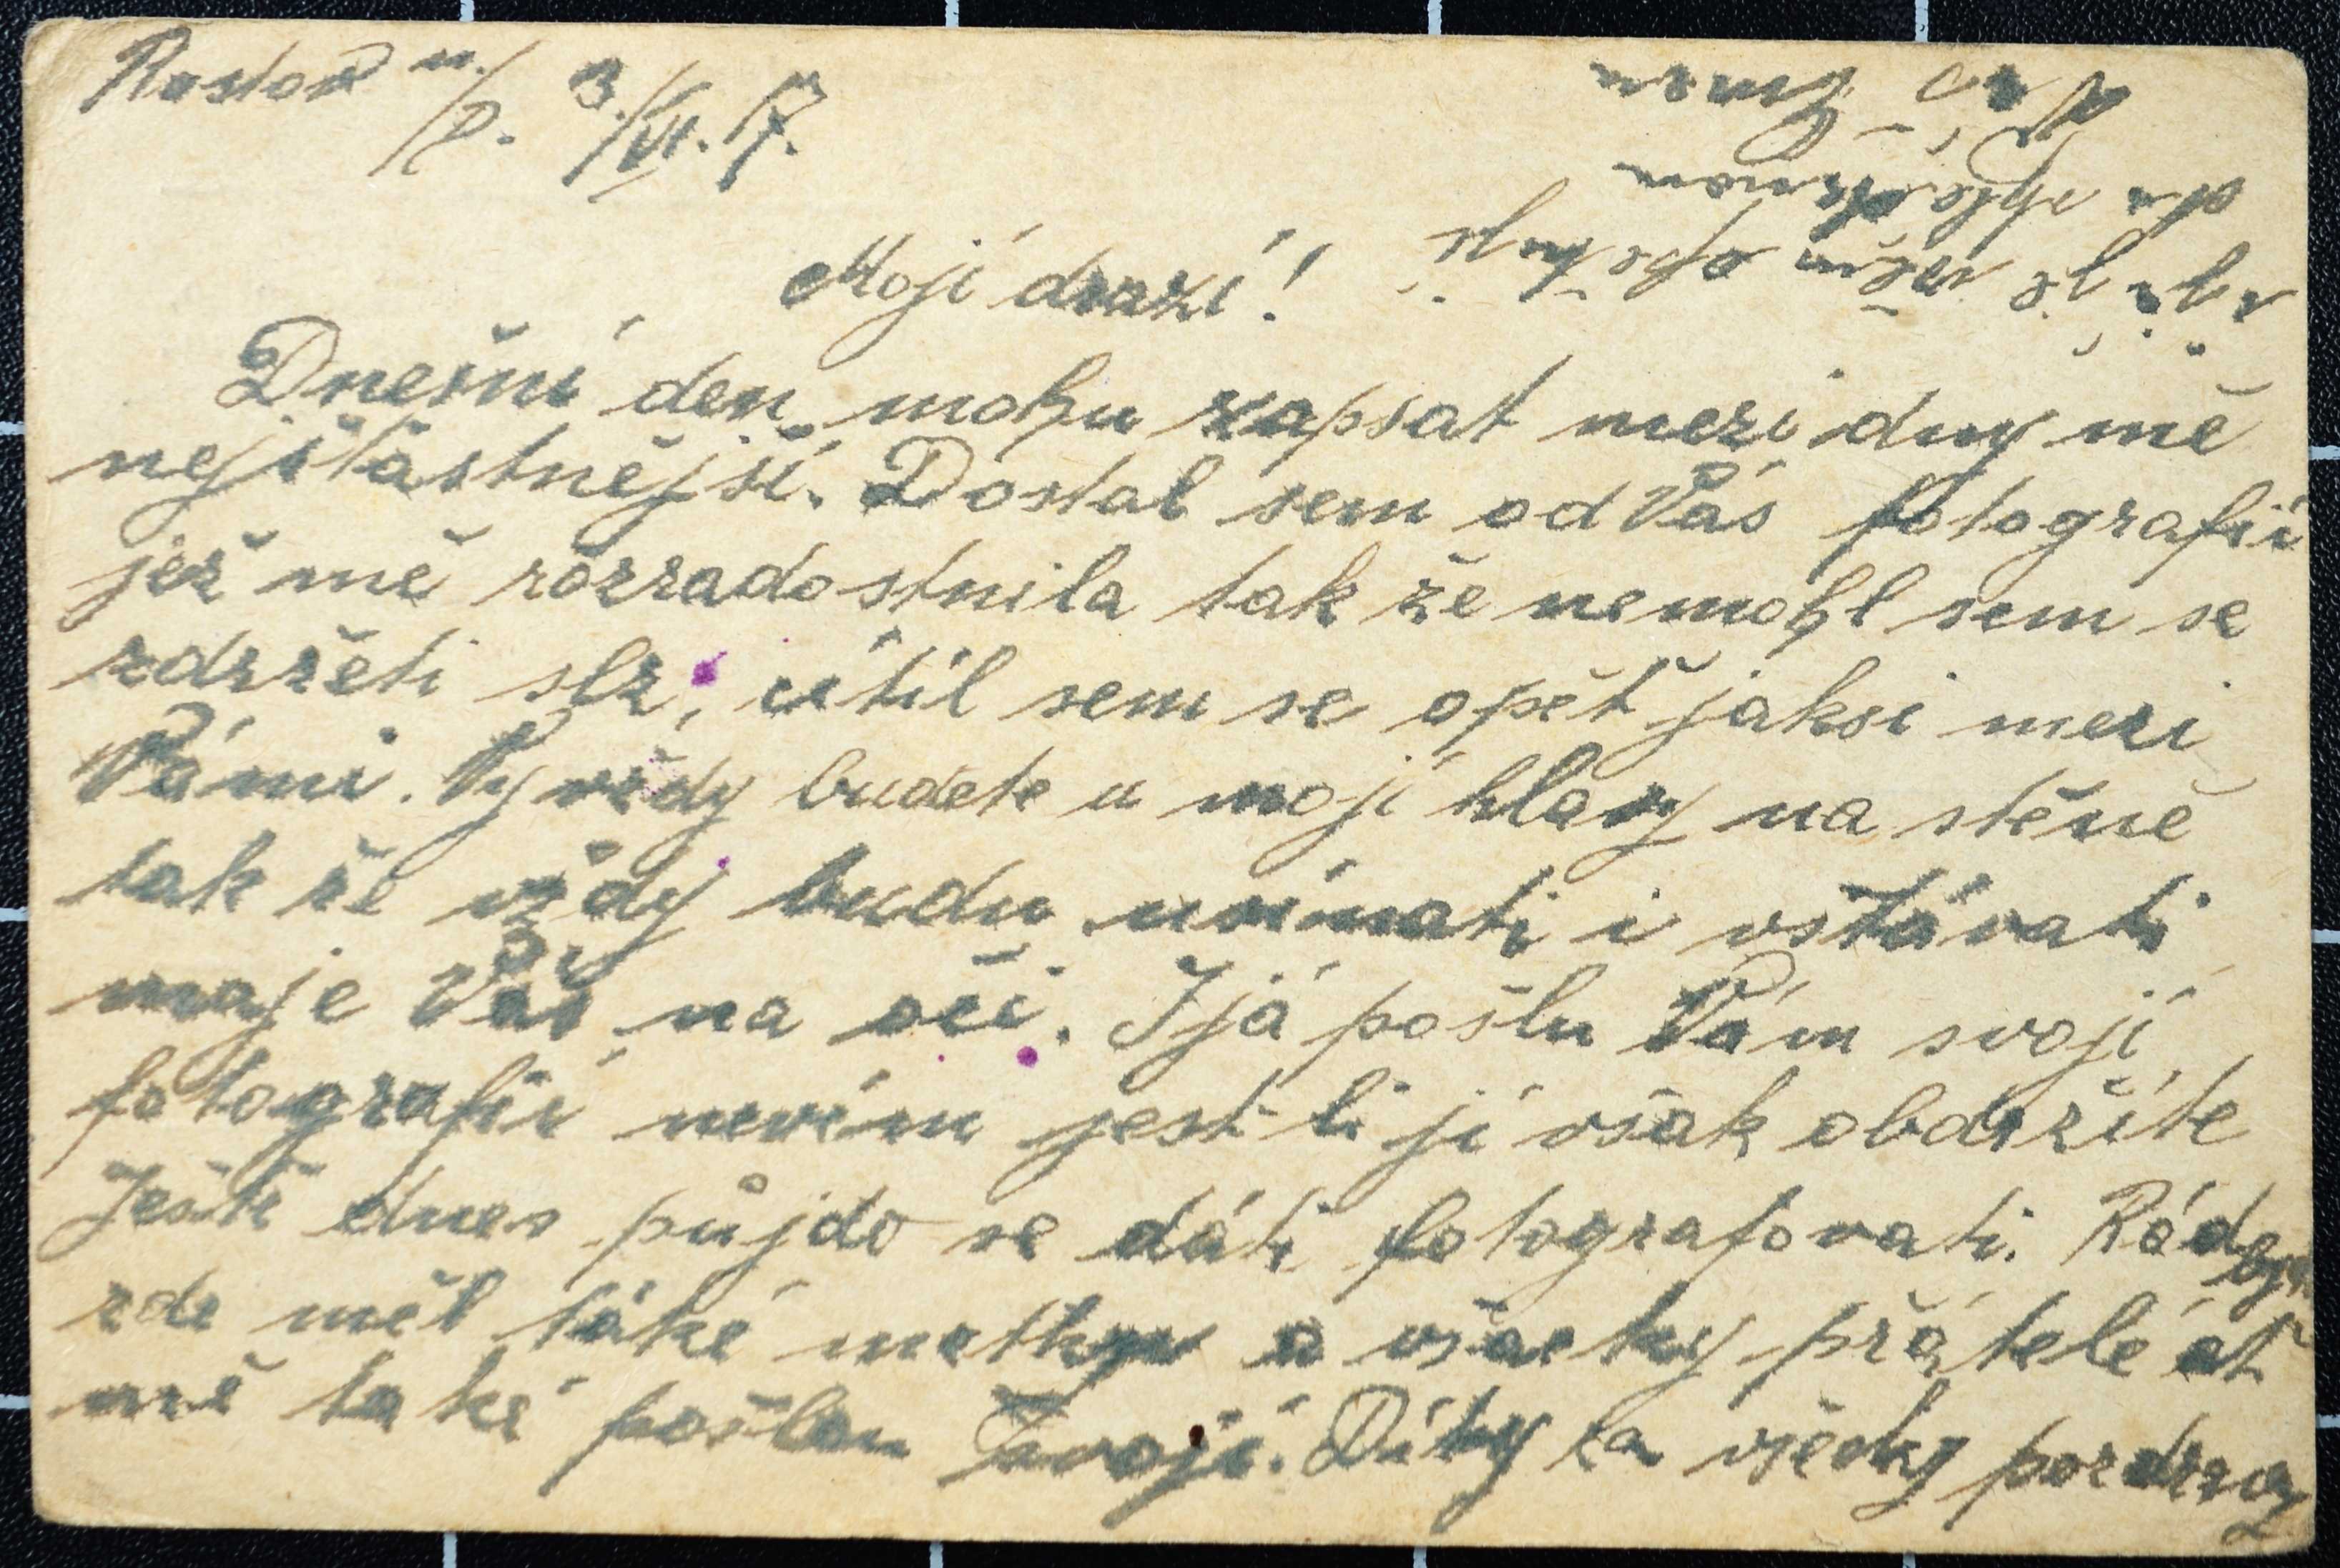 Rostov n./D. 3./VI. 17.
Moji drazí!
Dnešní den mohu zapsat mezi dny mě
nejšťastnější. Dostal sem od Vás fotografii
jež mě rozradostnila tak že nemohl sem se
zdržeti slz, cítil sem se opět jaksi mezi
Vámi. Vy vždy budete u moji hlavy na stěně
tak že vždy budu usínati i vstávati
maje Vás na oči. I já pošlu Vám svoji
fotografii nevím jest li ji však obdržíte
Ještě dnes půjdo se dáti fotografovati. Rád bych
zde měl také matku a všecky přátelé ať
mě také pošlou svoji. Díky za všecky pozdravy